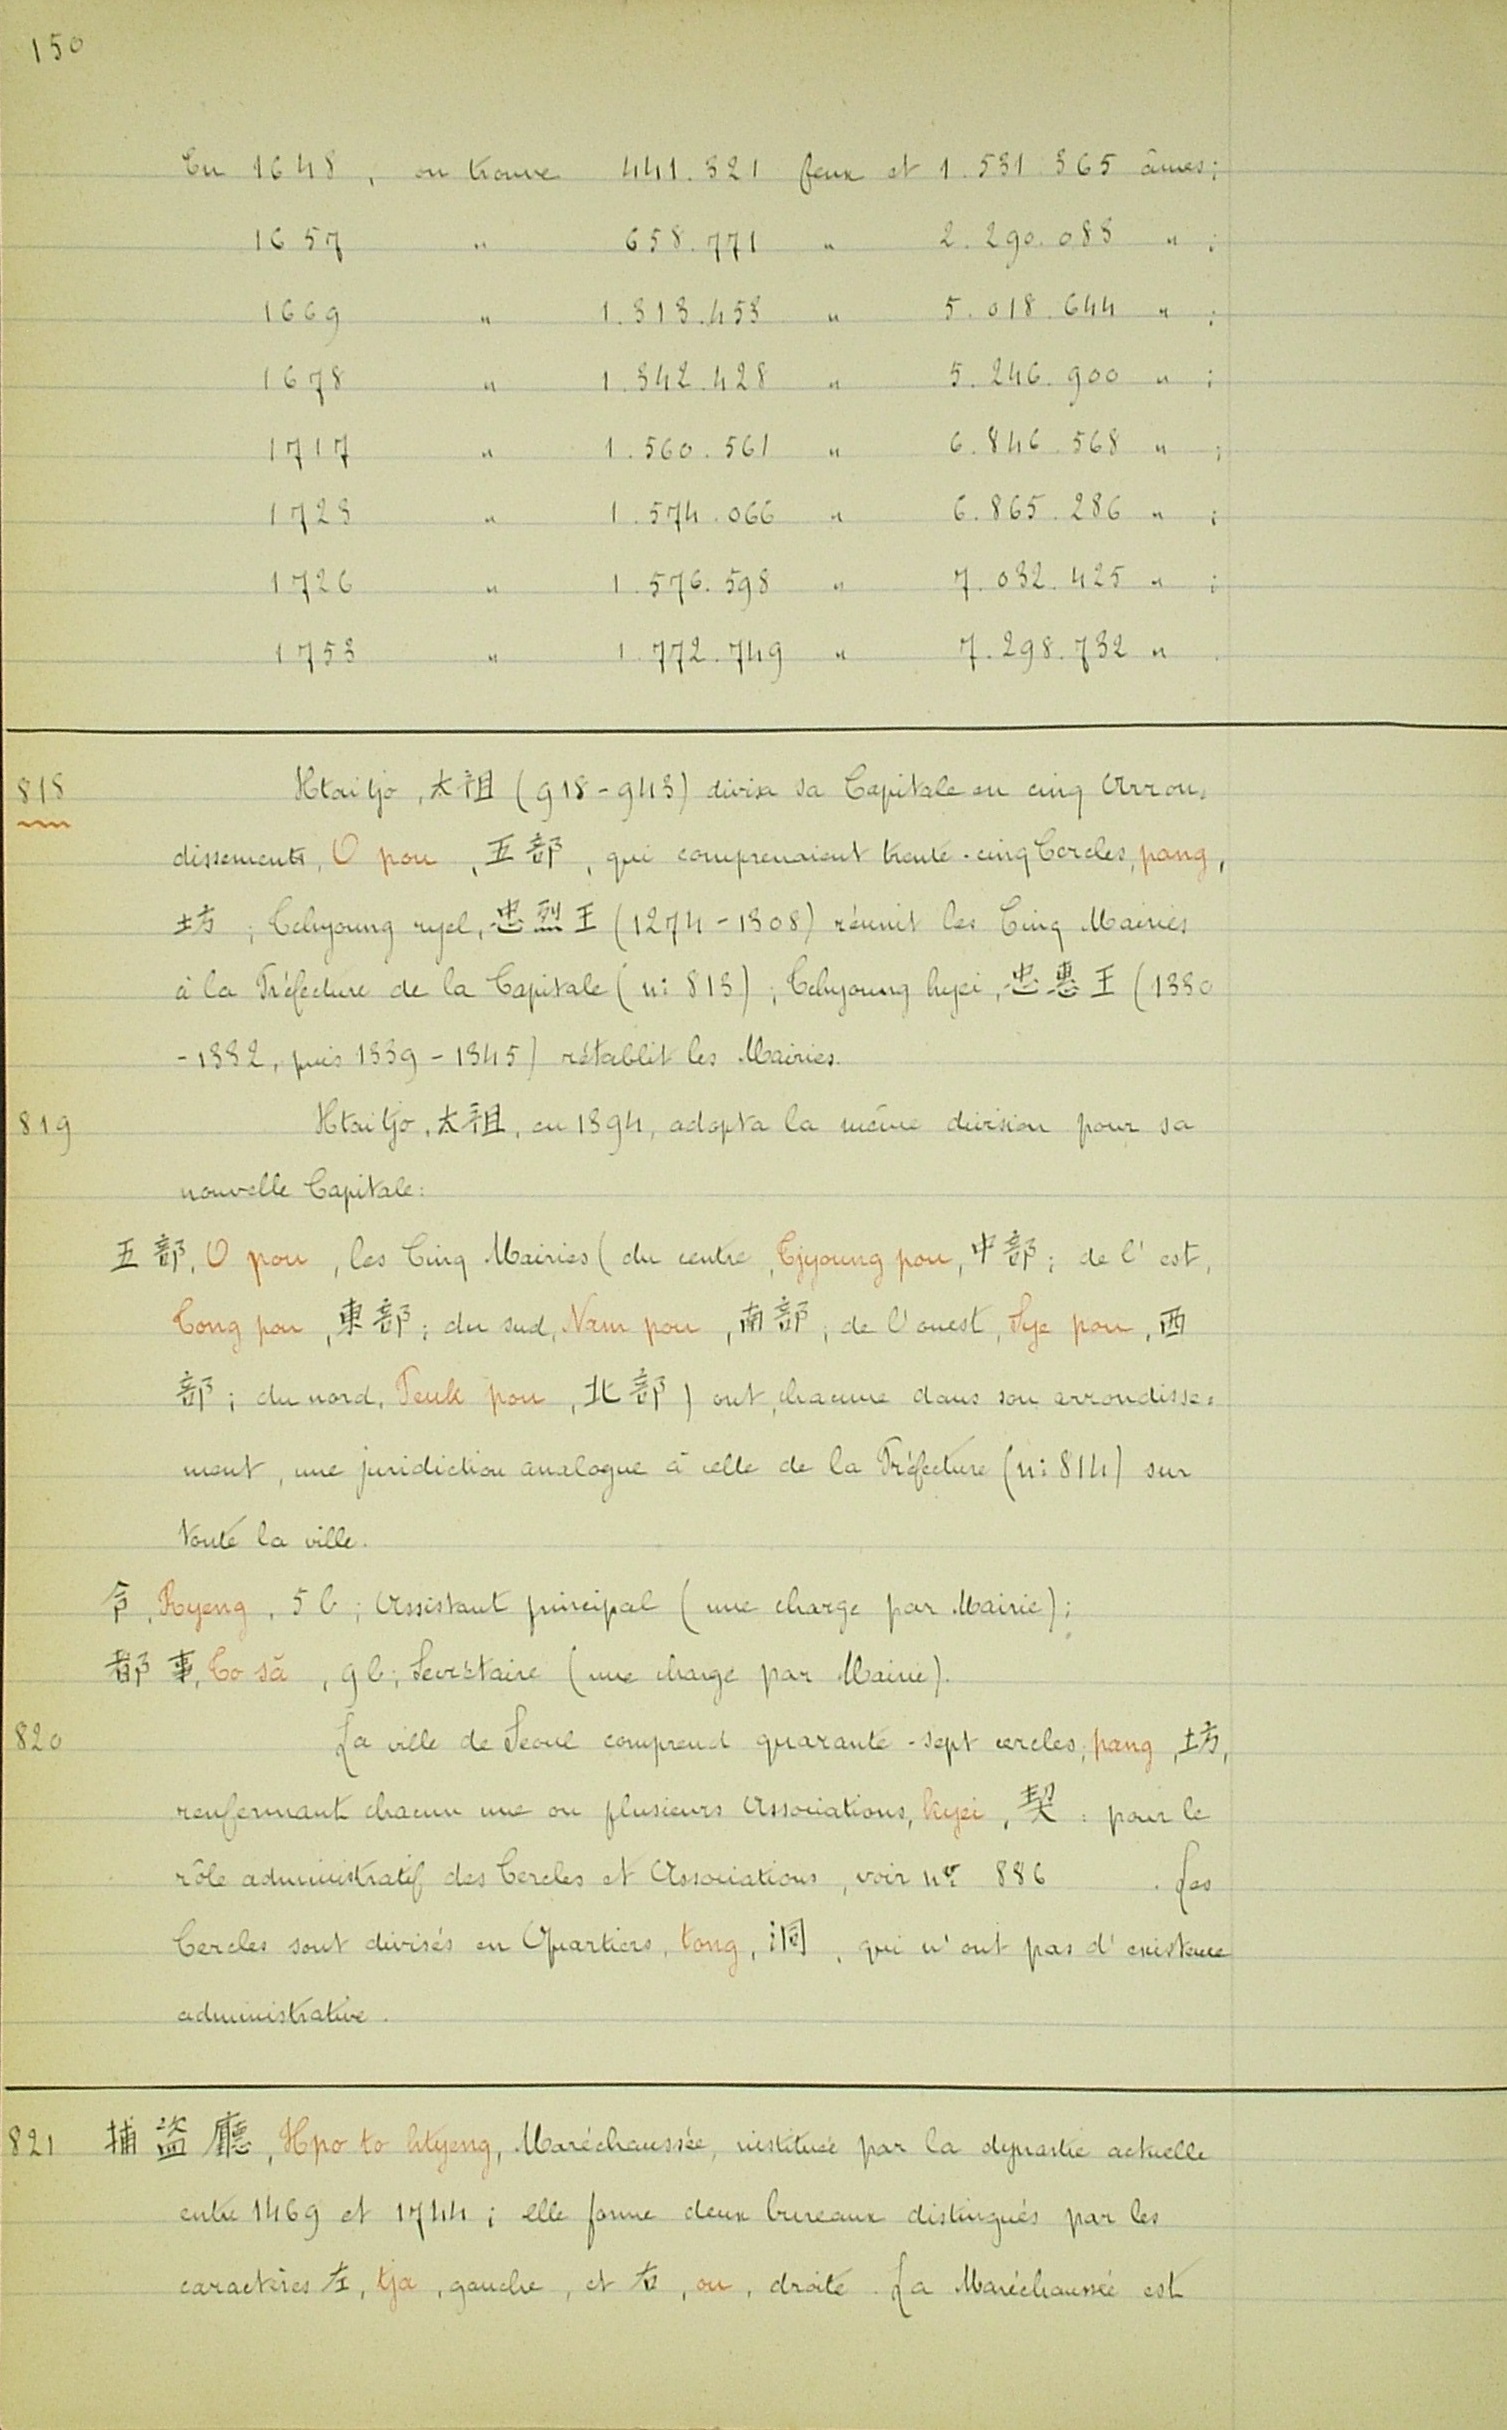 150
En 1648, on trouve 441.321 feux et 1.531.365 âmes;
1657 " 658.771 " 2.290.083 " ;
1669 " 1.313.453 " 5.018.644 " ;
1678 " 1.342.428 " 5.246.900 " ;
1717 " 1.560.561 " 6.846.568 " ;
1723 " 1.574.066 " 6.865.286 " ;
1726 " 1.576.598 " 7.032.425 " ;
1753 " 1.772.749 " 7.298.732 " .
818 Htai tjo, 太祖 (918-943) divisa sa Capitale en cinq Arron=
dissements, O pou, 五部, qui comprenaient trente-cinq Cercles, pang,
坊; Tchyoung ryel, 忠烈王 (1274-1308) réunit les Cinq Mairies
à la Préfecture de la Capitale (n: 813); Tchyoung hyei, 忠惠王 (1330
-1332, puis 1339-1345) rétablit les Mairies.
819 Htai tjo, 太祖, en 1394, adopta la même division pour sa
nouvelle Capitale:
五部, O pou, les Cinq Mairies (du centre, Tjyoung pou, 中部; de l'est,
Tong pou, 東部; du sud, Nam pou, 南部; de l'ouest, Sye pou, 西
部; du nord, Peuk pou, 北部) ont, chacune dans son arrondisse=
ment, une juridiction analogue à celle de la Préfecture (n: 814) sur
toute la ville.
令, Ryeng, 5 b; Assistant principal (une charge par Mairie);
都事, To să, 9 b; Secrétaire (une charge par Mairie).
820 La ville de Seoul comprend quarante-sept cercles, pang, 坊,
renfermant chacun une ou plusieurs Associations, kyei, 契: pour le
rôle administratif des Cercles et Associations, voir nos 886 . Les
Cercles sont divisés en Quartiers, tong, 洞, qui n'ont pas d'existence
administrative.
821 捕盜廳, Hpo to htyeng, Maréchaussée, instituée par la dynastie actuelle
entre 1469 et 1744; elle forme deux bureaux distingués par les
caractères 左, tja, gauche, et 右, ou, droite. La Maréchaussée est